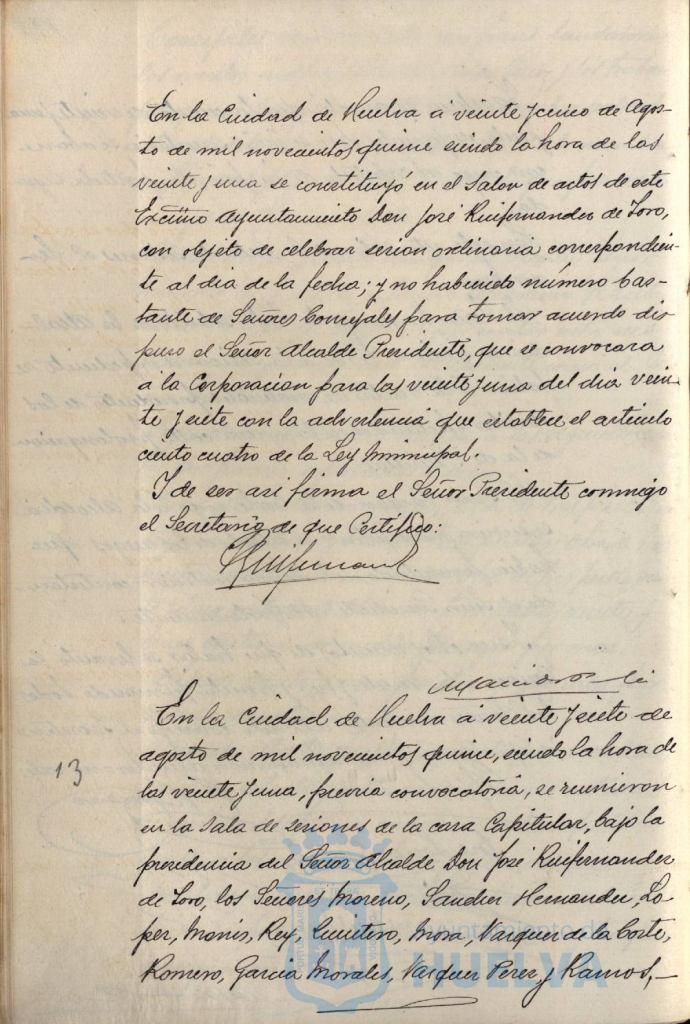 En la Ciudad de Huelva á veinte y cinco de Agos-
to de mil novecientos quince siendo la hora de las
veinte y una se constituyó en el Salon de actos de este
Excmo Ayuntamiento Don José Ruifernandez de Toro,
con objeto de celebrar sesion ordinaria correspondien-
te al dia de la fecha; y no habiendo número bas-
tante de Señores Concejales para tomar acuerdo dis
puso el Señor Alcalde Presidente, que se convocara
á la Corporacion para las veinte y una del dia vein-
te y siete con la advertencia que establece el articulo
ciento cuatro de la Ley Municipal.
Y de ser asi firma el Señor Presidente conmigo
el Secretario de que Certifico:
En la Ciudad de Huelva á veinte y siete de
agosto de mil novecientos quince, siendo la hora de
13
las veinte y una, previa convocatoria, se reunieron
en la Sala de sesiones de la casa Capitular, bajo la
presidencia del Señor Alcalde Don José Ruifernandez
de Toro, los Señores Moreno, Sanchez Hernandez, Lo-
pez, Monis, Rey, Quintero, Mora, Vazquez de la Corte,
Romero, Garcia Morales, Vazquez Perez y Ramos,
Ayuntamiento de
HUELVA